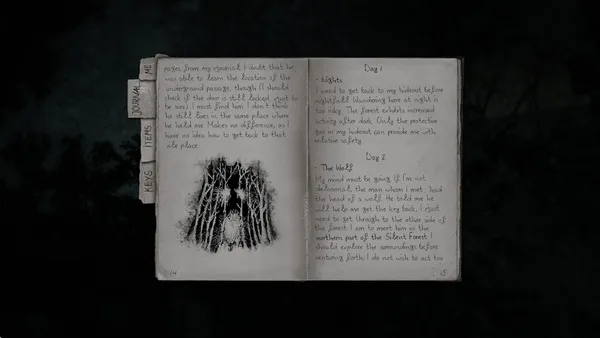 ME
JOURNAL
ITEMS
KEYS
pages from my journal. I doubt that he
was able to learn the location of the
underground passage, though I should
check if the door is still locked, just to
be sure. I must find him. I don't think
he still lives in the same place where
he held me. Makes no difference, as I
have no idea how to get back to that
vile place.
14
Day 1
- Nights
I need to get back to my hideout before
nightfall. Wandering here at night is
too risky. The forest exhibits increased
activity after dark. Only the protective
gas in my hideout can provide me with
relative safety.
Day 2
- The Wolf
My mind must be going. If I'm not
delusional, the man whom I met, had
the head of a wolf. He told me he
will help me get the key back. I just
need to get through to the other side of
the forest. I am to meet him in the
northern part of the Silent Forest. I
should explore the surroundings before
venturing forth. I do not wish to act too
15